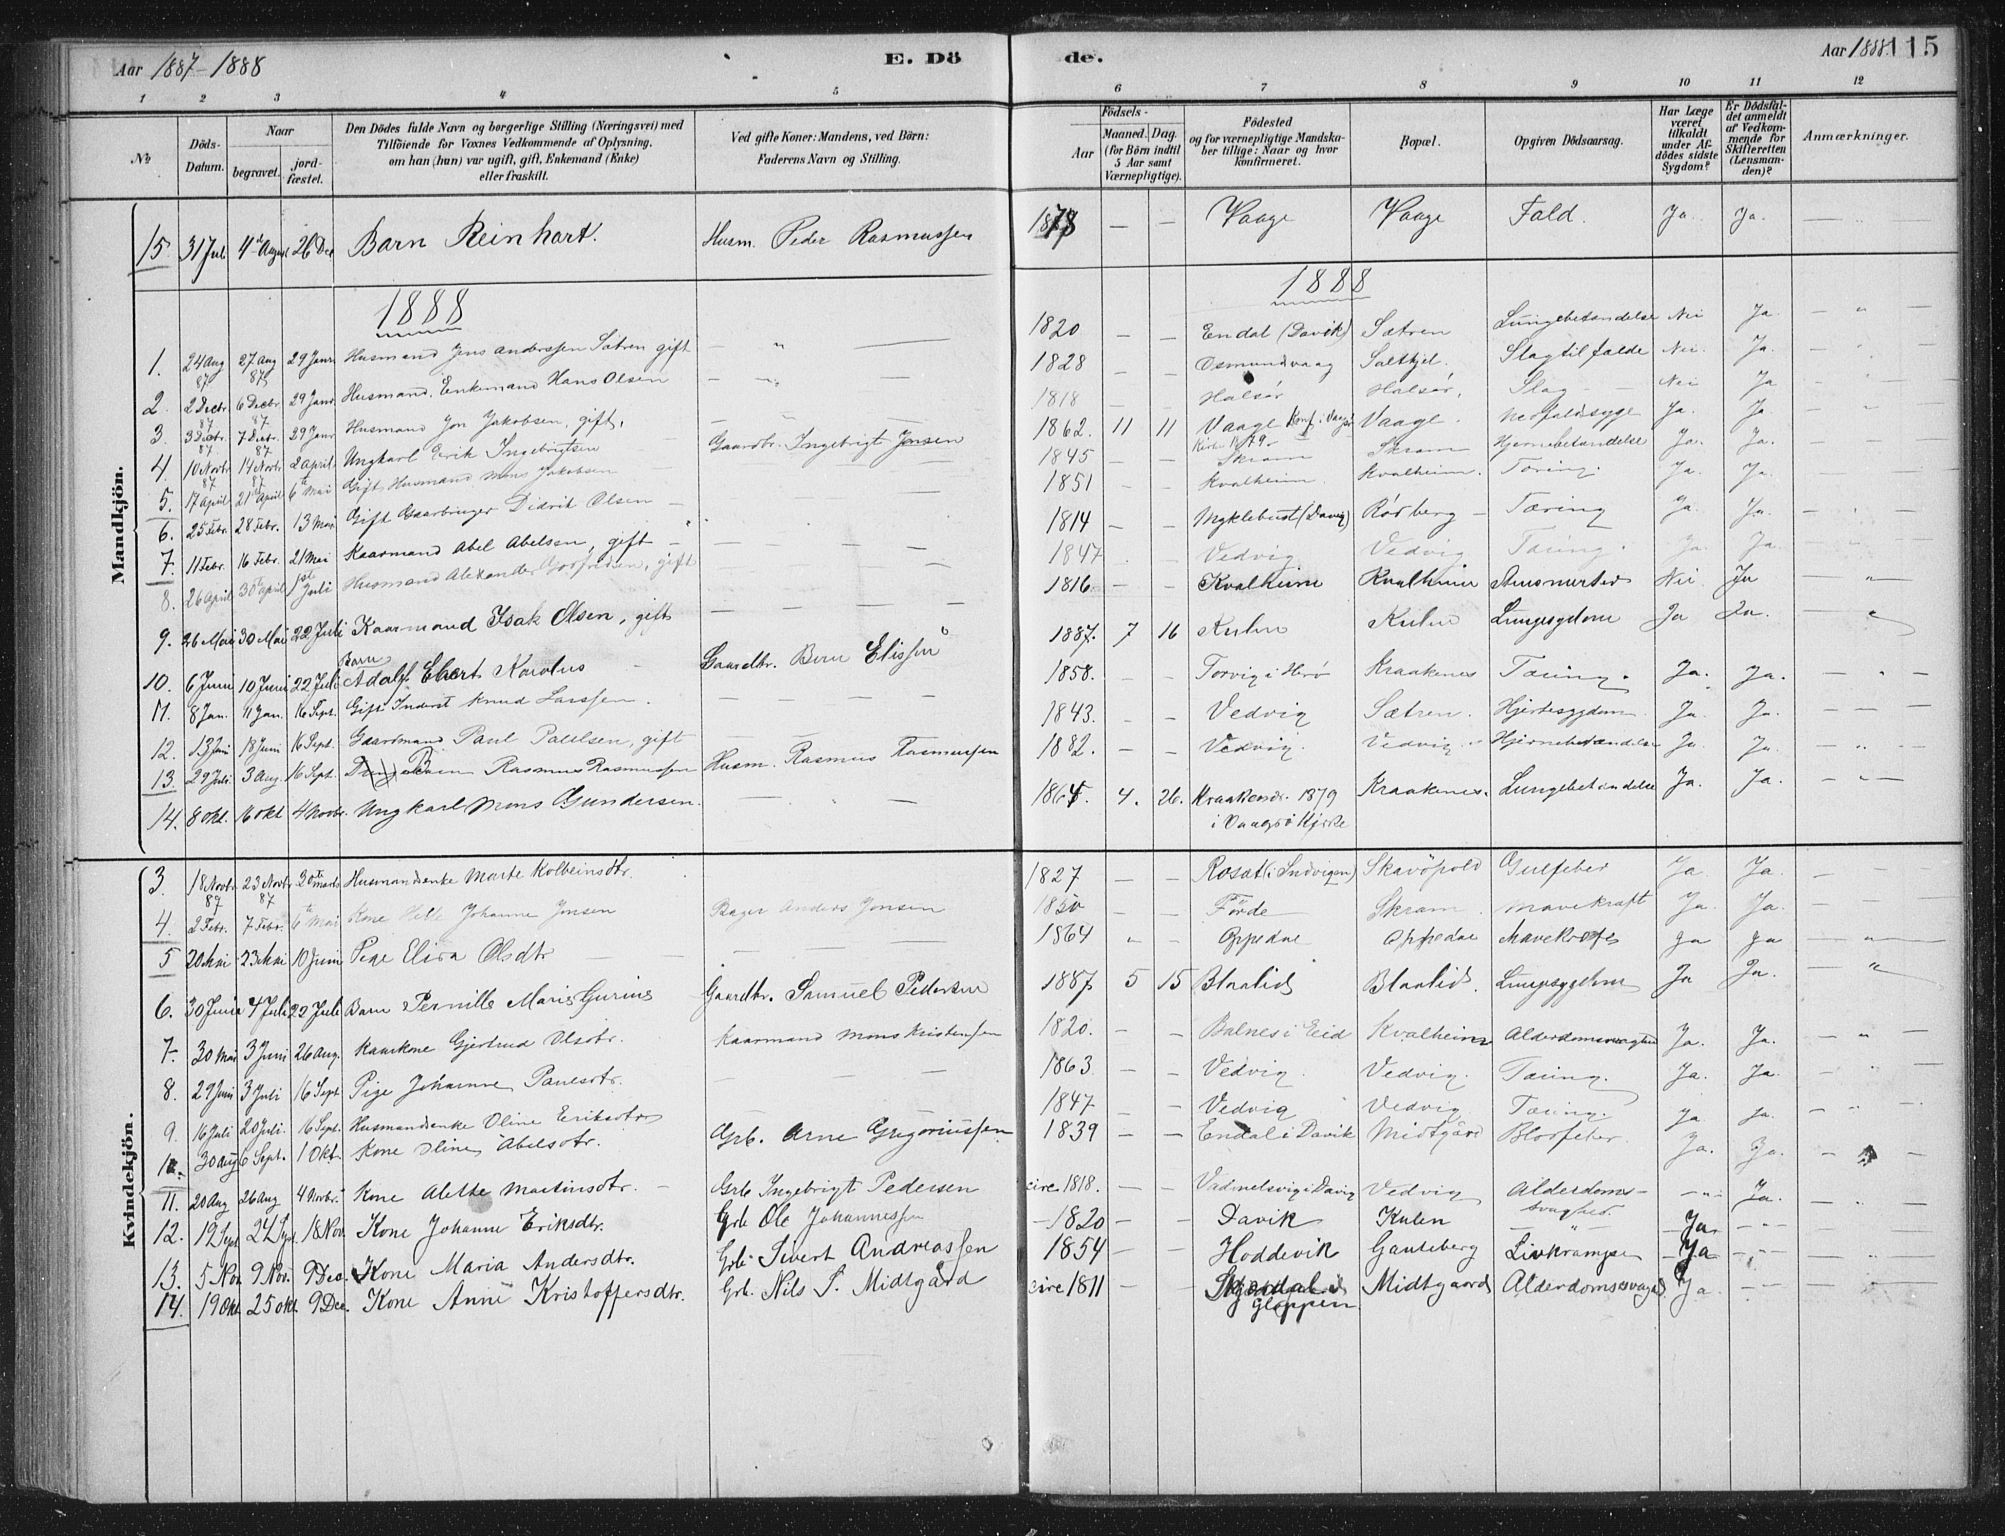 Aar 1887-1888
E. Dö
de.
Aar 1888. 115
1 2 3 4 5 6 7 8 9 10 11 12
No
Döds-Datum.
Naar
begravet.
jord-fæstet.
Den Dödes fulde Navn og borgerlige Stilling (Næringsvei) med
Tilföiende for Voxnes Vedkommende af Oplysning,
om han (hun) var ugift, gift, Enkemand (Enke)
eller fraskilt.
Ved gifte Koner: Mandens, ved Börn:
Faderens Navn og Stilling.
Födsels-
Aar
Maaned. Dag.
(for Börn indtil
5 Aar samt
Værnepligtige).
Födested
og for værnepligtige Mandska-
ber tillige: Naar og hvor
konfirmeret.
Bopæl.
Opgiven Dödsaarsag.
Har Læge
været
tilkaldt
under Af-
dödes sidste
Sygdom?
Er Dödsfal-
det anmeldt
af Vedkom-
mende for
Skifteretten
(Lensman-
den)?
Anmærkninger.
Mandkjön.
15. 31 Juli 4de August 26 Dec Barn Reinhart. Husm. Peder Rasmussen 1878 — — Vaage Vaage Fald. Ja. Ja. —
1888 1888
1. 24 Aug 87 27 Aug 87 29 Janr Husmand Jens Anderssen Sætren gift — 1820 — — Endal (Davik) Sætren Lungebetændelse Nei Ja. —
2. 2 Decbr. 87 6 Decbr 87 29 Janr. Husmand, Enkemand Hans Olsen — 1828 — — Osmundvaag Saltkjel. Slagtilfælde Nei. Ja. —
3. 3 Decbr. 87 7 Decbr. 87 29 Janr Husmand Jon Jakobsen, gift. — 1818 — — Halsør Halsør. Slag — Nei Ja —
4. 10 Novbr. 87 14 Novbr. 87 2 April. Ungkarl Erik Ingebrigtsen Gaardbr. Ingebrigt Jonsen 1862. 11 11 Vaage Konf. i Vaagsø Kirke 1879 Vaage. Nerfaldssyge Ja. Ja —
5. 17 April 21 April 6te Mai Gift Husmand Mons Jakobsen — 1845 — — Skram Skram Hjernebetændelse Ja. Ja. —
6. 25 Febr. 28 Febr. 13 Mai Gift Gaarbruger Didrik Olsen — 1851 — — Kvalheim Kvalheim. Tæring. Ja. Ja. —
7. 11 Febr. 16 Febr. 21 Mai Kaarmand Abel Abelsen, gift — 1814 — — Myklebust (Davig) Rødberg — Tæring Ja. Ja. —
8. 26 April 30te April 1st Juli Husmand Alexander, gift — 1847 Vedvig Vedvig Tæring. Ja. Ja. —
9. 26 Mai 30 Mai 22 Juli Kaarmand Isak Olsen, gift — 1816. Kvalheim Kvalheim Nei Ja —
10. 6 Juni 10 Juni 22 Juli Barn Adolf Ebert Karolus Gaardbr. Elissen 1887. 7 16 Kulen Kulen Lungesygdom Ja Ja. —
11. 8 Jan. 11 Jan. 16 Sept. Gift Inderst Knud Larssen. — 1858. — — Torvig i Herø Kraakenes Tæring. Ja. Ja. —
12. 13 Juni 18 Juni 16 Sept. Gaardmand Paul Paulsen, gift — 1843. — — Vedvig Sætren. Hjertesygdom Ja. Ja. — —
13. 29 Juli 3 Aug. 16 Sept. Barn Rasmus Rasmussen Husm. Rasmus Rasmussen 1882. — — Vedvig. Vedvig. Hjernebetændelse Ja. Ja. —
14. 8 Okt. 16 Okt 4 Novbr. Ungkarl Mons Gundersen. — 1864. 4. 26. Kraakenes. 1879 Kraakenes. Lungebetændelse Ja. Ja. —
i Vaagsø Kirke
Kvindekjön.
3. 18 Novbr. 87 23 Novbr. 87 30te Marts Husmandsenke Marte Kolbeinsdtr. 1827 — — Roset (i Indvigen) Skavöpold Gulfeber Ja Ja. —
4. 2 Febr. 7 Febr. 6te Mai Kone Johanne Jonsen Bager Anders Jonsen 1850 — — Förde Skram. Mavekræft Ja. Ja. —
5 20 Mai 23 Mai 10 Juni Pige Elisa Olsdtr — 1864 — Oppedal Oppedal Mavekræft Ja Ja —
6. 30 Juni 4 Juli 22 Juli Barn Pernille Marie Gurine Gaardbr. Samuel Pedersen 1887 5 15 Blaalid Blaalid. Lungesygdom Ja Ja. —
7. 30 Mai 3 Juni 26 Aug. Kaarkone Gjertrud Olsdtr. Kaarmand Mons Kristensen 1820. — — Balnes i Eid Kvalheim Alderdomssvaghed Ja. Ja. —
8. 29 Juni 3 Juli 16 Sept Pige Johanne Paulsdtr. — 1863 — — Vedvig. Vedvig. Tæring. Ja. Ja. —
9. 16 Juli 20 Juli 16 Sept. Husmandsenke Oline Eriksdtr — 1847 — — Vedvig Vedvig Tæring. Ja Ja. —
10. 30 Aug 6 Sept. 1 Okt. Kone Oline Abelsdtr. Grb. Arne Gregoriussen 1839 — — Endal i Davik Midtgård Blodfeber. Ja. Ja. —
11. 20 Aug 26 Aug 4 Novbr. Kone Alette Martinsdtr. — Grb Ingebrigt Pedersen circ 1818. — — Davig Vedvig Alderdoms-svaghed. — " — Ja. —
12. 19 Sept 24 Sept 18 Nov. Kone Johanne Eriksdtr. Grb Ole Johannessen 1820 — — Davik Kulen — " — Ja. — " —
13. 5 Nov 9 Nov. 9 Dec. Kone Maria Andersdtr. Grb. Sivert Andreassen 1854 — — Hoddevik Gauteberg Livkrampe Ja — " —
14. 19 Okt. 25 Okt. 9 Dec. Kone Anne Kristoffersdtr. Grb. Nils S. Midtgård circ 1811 — — Gloppen Midtgaard Alderdomssvaghed. Ja. —